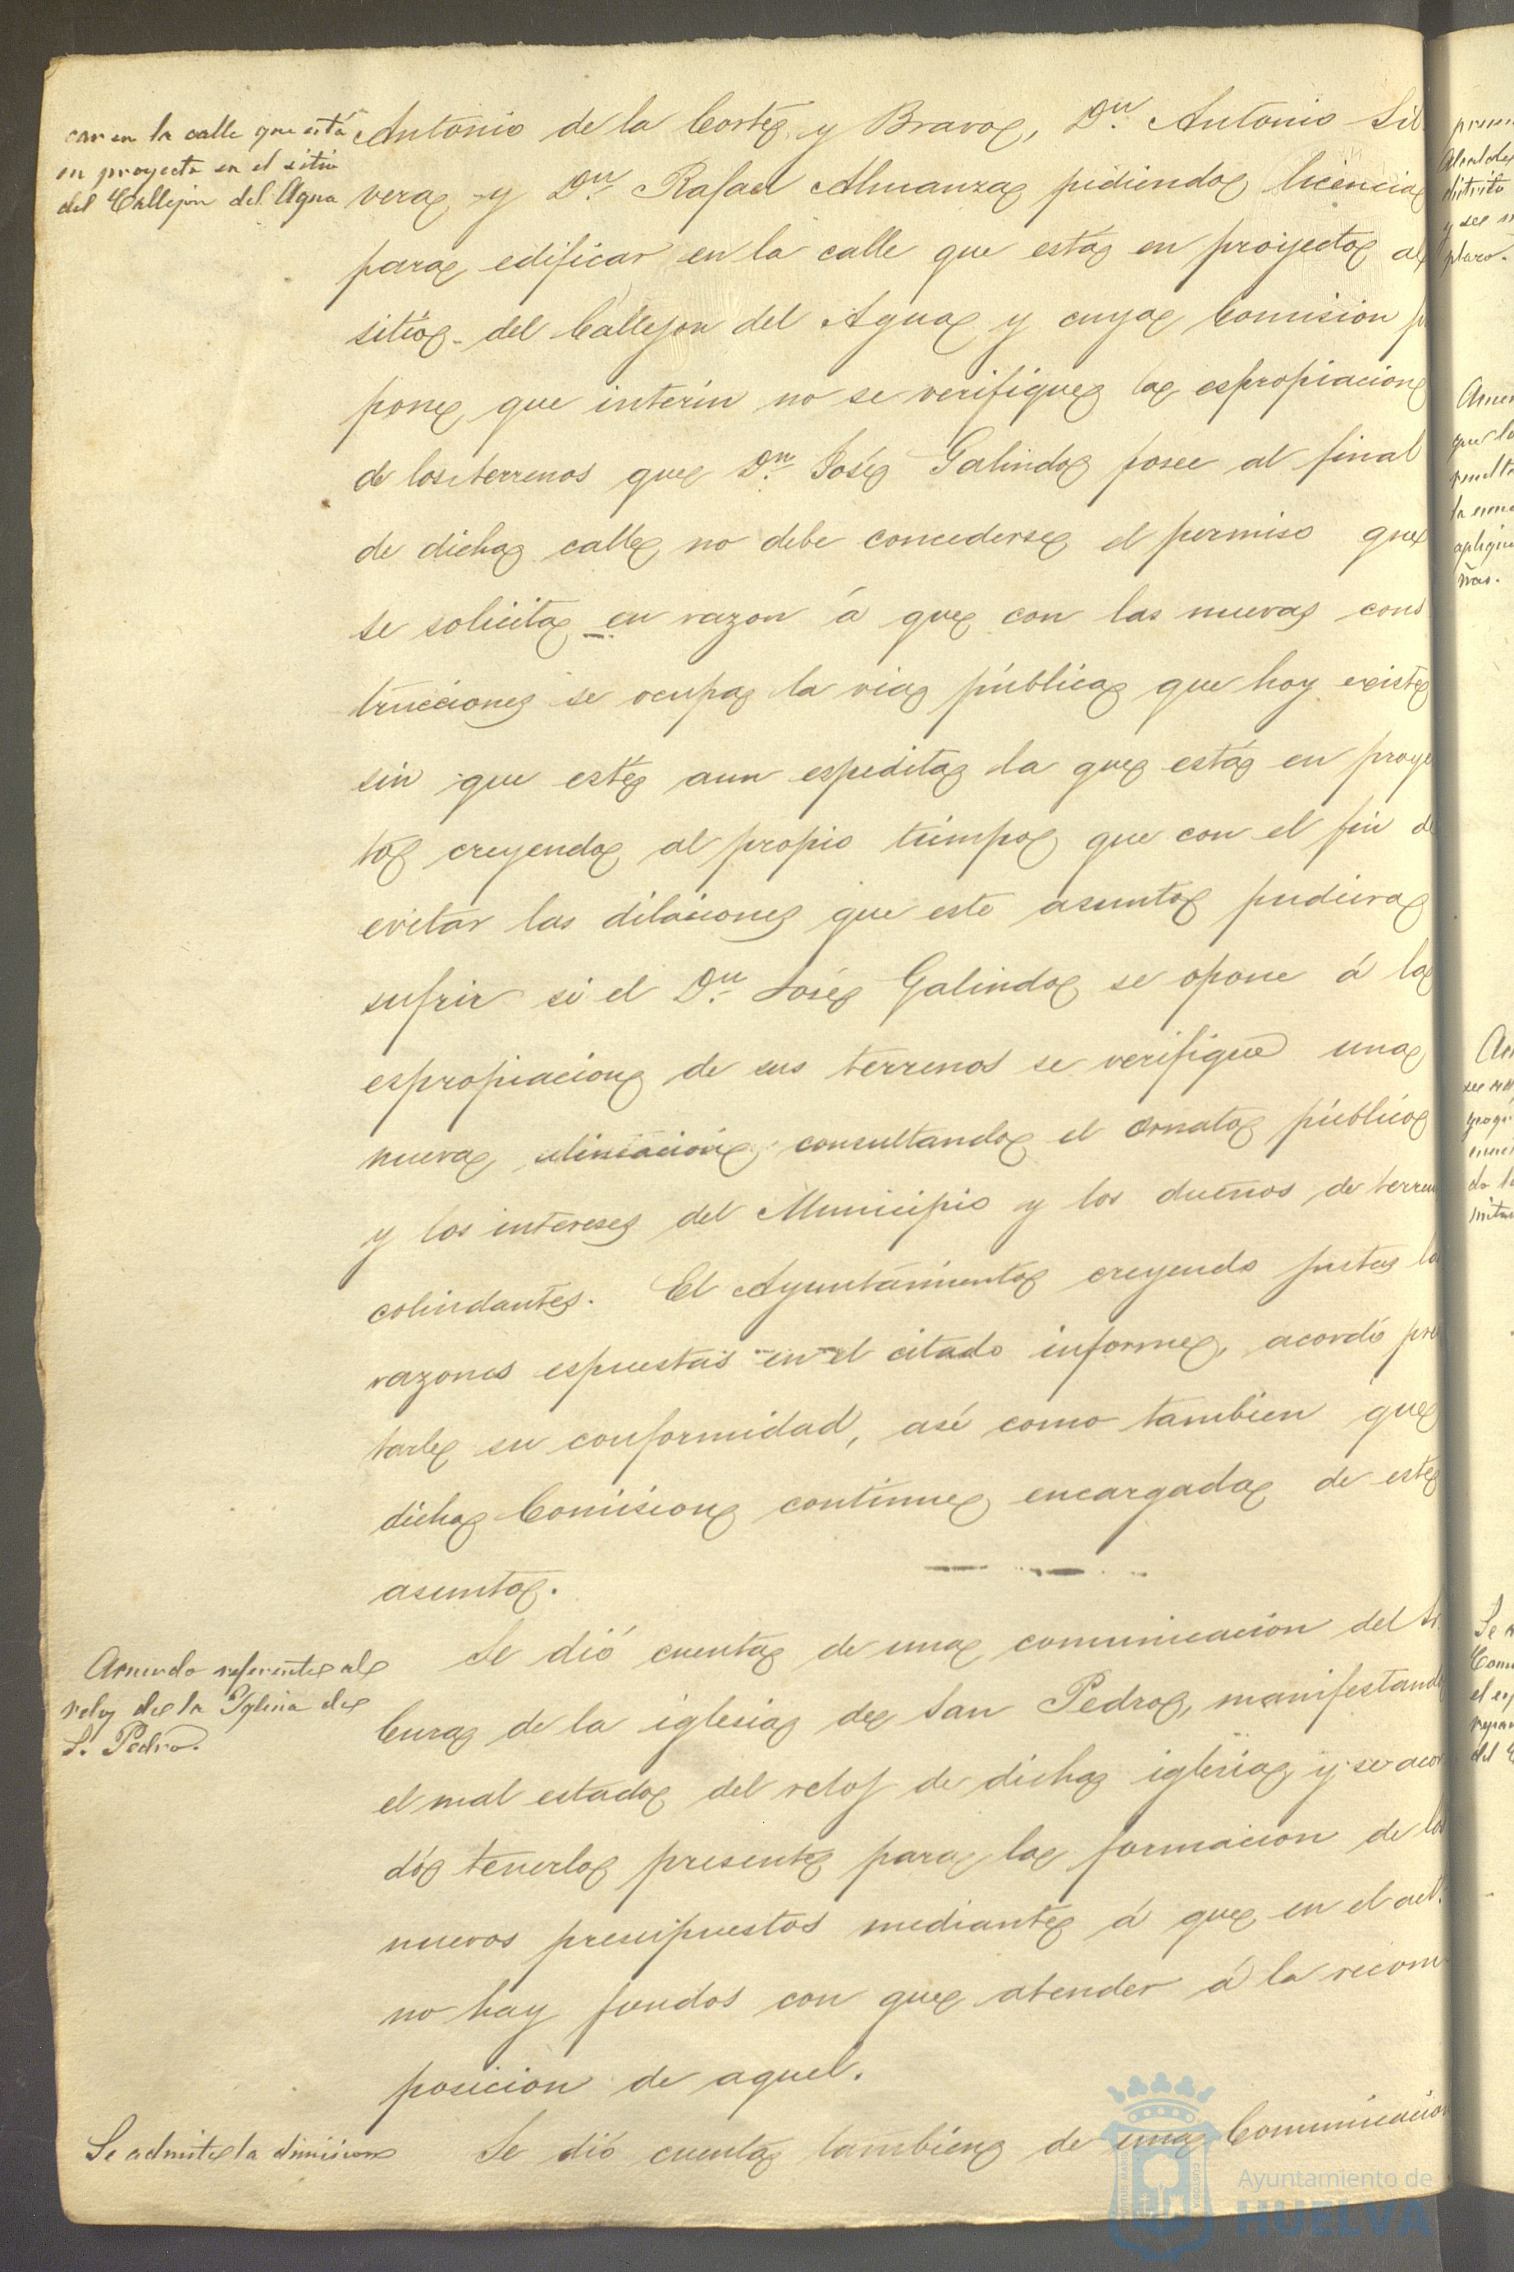 car en la calle que está
en proyecto en el sitio
del Callejon del Agua
Antonio de la Corte y Bravo, Dn. Antonio Sil
vera y Dn. Rafael Almanza pidiendo licencia
para edificar en la calle que está en proyecto al
sitio del Callejon del Agua y cuya Comision p
pone que interin no se verifique la espropiacion
de los terrenos que Dn. José Galindo posee al final
de dicha calle no debe concederse el permiso que
se solicita en razon á que con las nuevas cons
trucciones se ocupa la via pública que hoy existe
sin que esté aun espedita la que está en proye
to creyendo al propio tiempo que con el fin de
evitar las dilaciones que este asunto pudiera
sufrir si el Dn. José Galindo se opone á la
espropiacion de sus terrenos se verifique una
nueva alineacion consultando el ornato público
y los intereses del Municipio y los dueños de terren
colindantes. El Ayuntamiento creyendo justas la
razones espuestas en el citado informe, acordó pres
tarle su conformidad, asi como tambien que
dicha Comision continue encargada de este
asunto.
Acuerdo referente al
reloj de la Iglesia de
S. Pedro.
Se dió cuenta de una comunicacion del Sr.
Cura de la iglesia de San Pedro, manifestando
el mal estado del reloj de dicha iglesia y se acor
dó tenerlo presente para la formacion de los
nuevos presupuestos mediante á que en el act.
no hay fondos con que atender á la recom
posicion de aquel.
Se admite la dimision
Se dió cuenta tambien de una Comunicacion
Ayuntamiento de
HUELVA